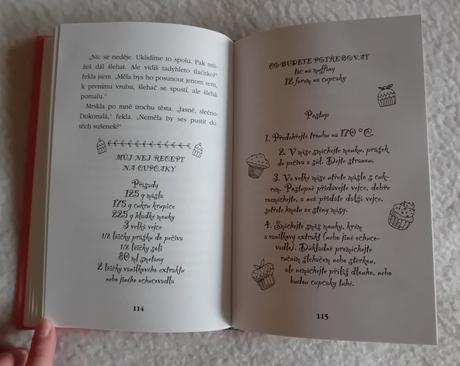 „Nic se neděje. Uklidíme to spolu. Pak mů-
žeš dál šlehat. Ale vidíš tadyhleto tlačítko?“
řekla jsem. „Měla bys ho posunout jenom sem,
k prvnímu vrubu, šlehač se spustí, ale šlehá
pomalu.“
Mrskla po mně trochu těsta. „Jasně, slečno
Dokonalá,“ řekla. „Neměla by ses pustit do
těch sušenek?“
MŮJ NEJ RECEPT
NA CUPCAKY
Přísady
125 g másla
175 g cukru krupice
225 g hladké mouky
3 velká vejce
1/2 lžičky prášku do pečiva
1/2 lžičky soli
80 ml smetany
2 lžičky vanilkového extraktu
nebo jiného ochucovadla
114
CO BUDETE POTŘEBOVAT
Plát na muffiny
12 forem na cupcaky
Postup
1. Předehřejte troubu na 170 °C.
2. V míse smíchejte mouku, prášek
do pečiva a sůl. Dejte stranou.
3. Ve velké míse utřete máslo s cuk-
rem. Postupně přidávejte vejce, dobře
rozmíchejte, a než přidáte další vejce,
setřete hmotu ze stěny mísy.
4. Smíchejte směs mouky, krém
a vanilkový extrakt (nebo jiné ochuco-
vadlo). Důkladně promíchejte
ručním šlehačem nebo stěrkou,
ale nemíchejte příliš dlouho, nebo
budou cupcaky tuhé.
115